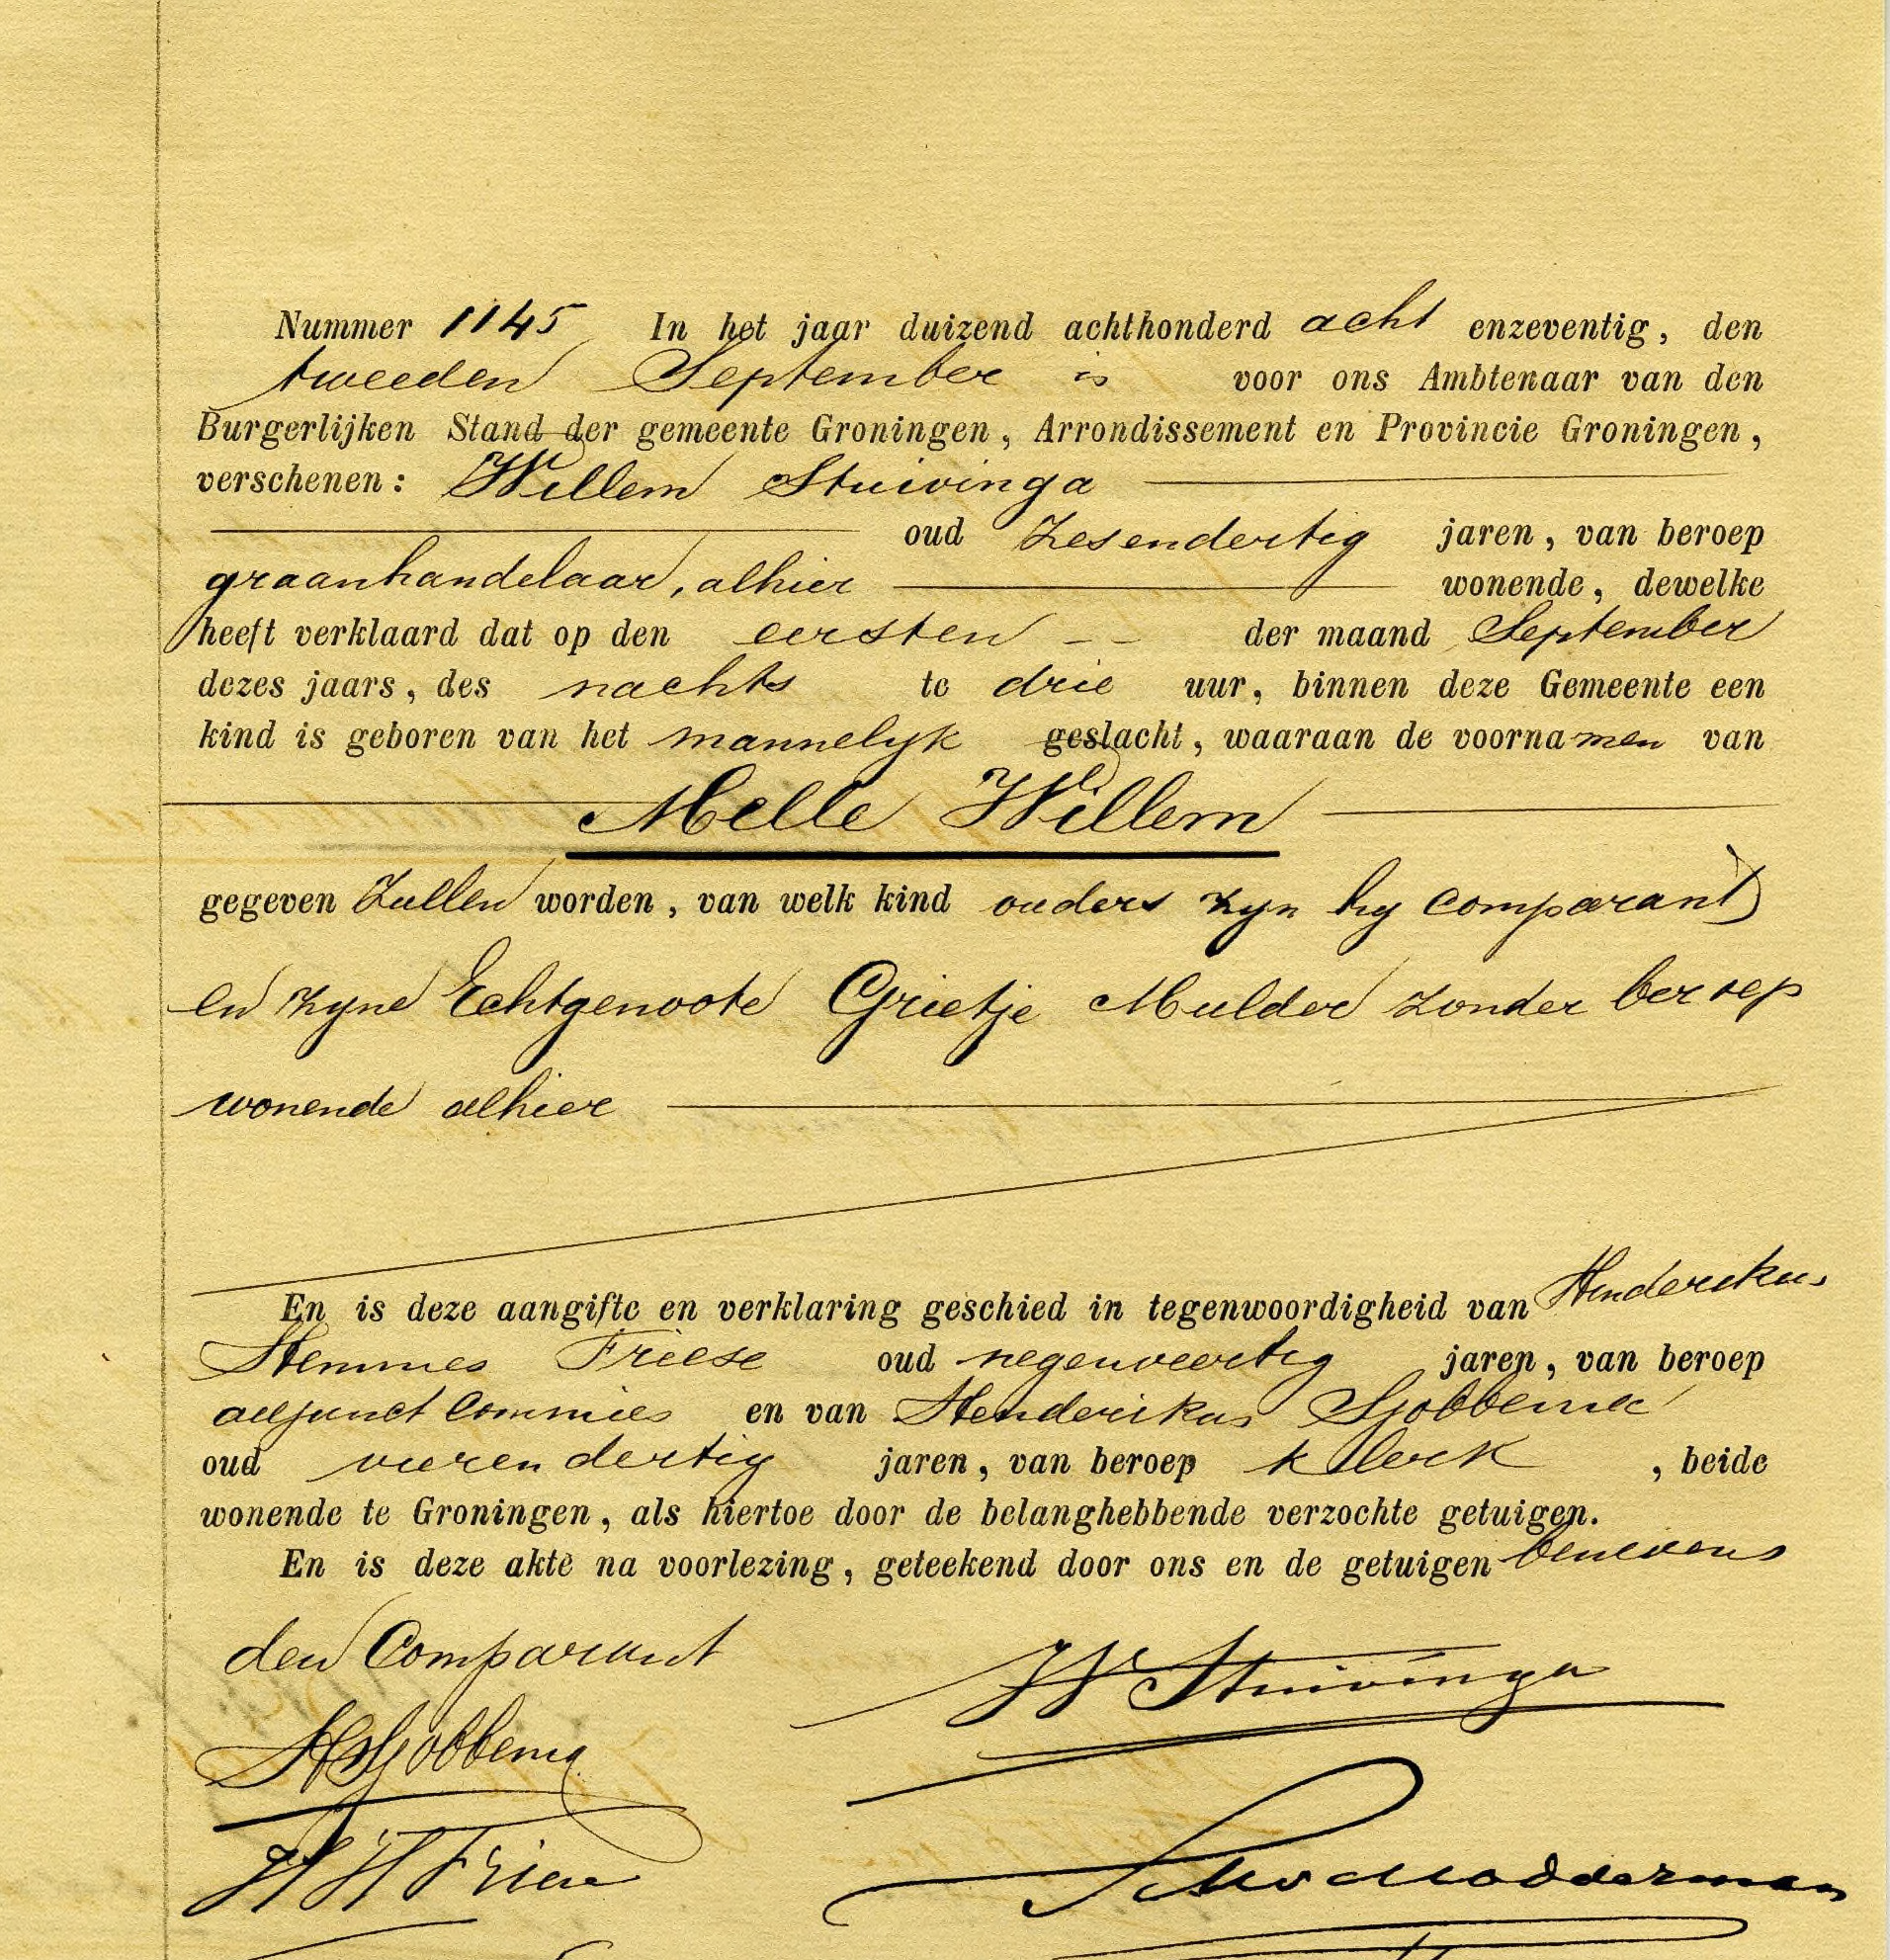 Nummer 1145 In het jaar duizend achthonderd acht enzeventig, den
tweeden September is voor ons Ambtenaar van den
Burgerlijken Stand der gemeente Groningen, Arrondissement en Provincie Groningen,
verschenen: Willem Stuivinga
oud zesendertig jaren, van beroep
graanhandelaar, alhier wonende, dewelke
heeft verklaard dat op den eersten -- der maand September
dezes jaars, des nachts te drie uur, binnen deze Gemeente een
kind is geboren van het mannelyk geslacht, waaraan de voornamen van
Melle Willem
gegeven zullen worden, van welk kind ouders zyn hy comparant
en zyne Echtgenoote Grietje Mulder zonder beroep
wonende alhier
En is deze aangifte en verklaring geschied in tegenwoordigheid van Henderikus
Hemmes Friese oud negenveertig jaren, van beroep
adjunct Commies en van Henderikus Sjobbema
oud vierendertig jaren, van beroep klerk, beide
wonende te Groningen, als hiertoe door de belanghebbende verzochte getuigen.
En is deze akte na voorlezing, geteekend door ons en de getuigen benevens
den Comparant
W Stuivinga
HSjobbema
HHFriese
Modderman